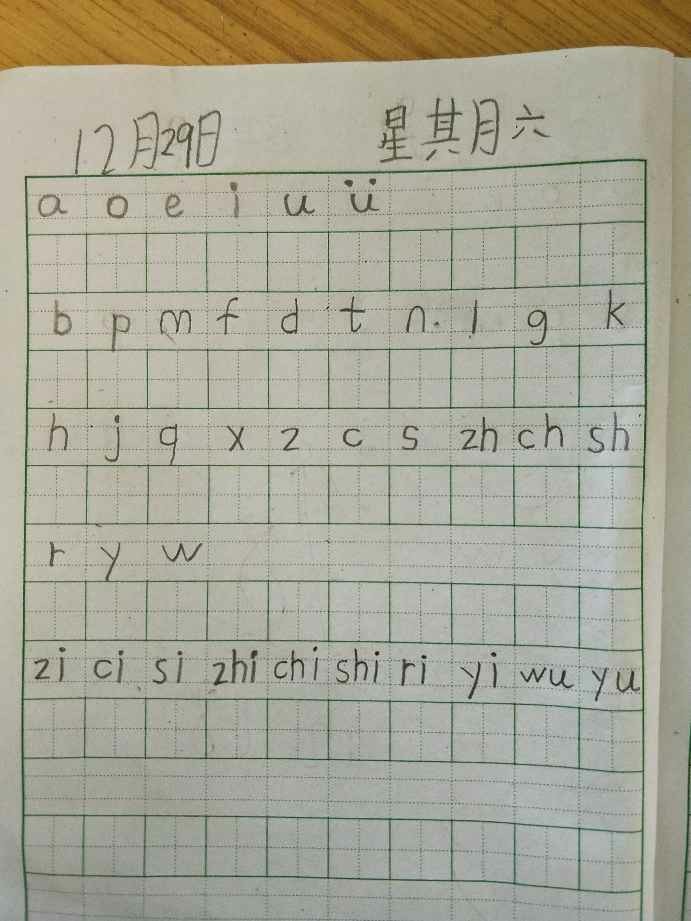 12月29日 星其月六
a o e i u ü
b p m f d t n. l g k
h j q x z c s zh ch sh
r y w
zi ci si zhi chi shi ri yi wu yu